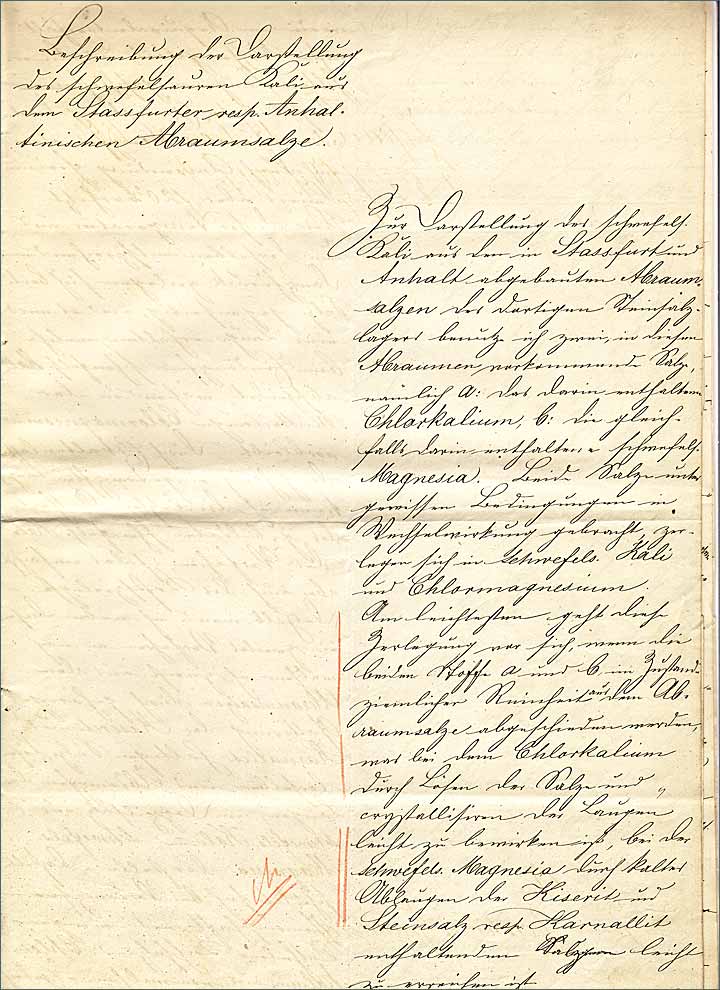 Beschreibung der Darstellung
des schwefelsauren Kali aus
dem Stassfurter resp. Anhal-
tinischen Abraumsalze.
Zur Darstellung des schwefels.
Kali aus den in Stassfurt und
Anhalt abgebauten Abraum-
salzen des dortigen Steinsalz-
lagers benutze ich zwei, in diesen
Abraumen vorkommende Salze,
nämlich a: das darin enthaltene
Chlorkalium, b: die gleich-
falls darin enthaltene schwefels.
Magnesia. Beide Salze unter
gewissen Bedingungen in
Wechselwirkung gebracht, zer-
legen sich in schwefels. Kali
und Chlormagnesium.
Am leichtesten geht diese
Zerlegung vor sich, wenn die
beiden Stoffe a und b im Zustand
ziemlicher Reinheit aus dem Ab-
raumsalze abgeschieden werden,
was bei dem Chlorkalium
durch Lösen der Salze und
crystallisiren der Laugen
leicht zu bewirken ist, bei der
schwefels. Magnesia durch kaltes
Ablaugen der Kiserit und
Steinsalz resp. Karnallit
enthaltenden Salze leicht
zu erreichen ist